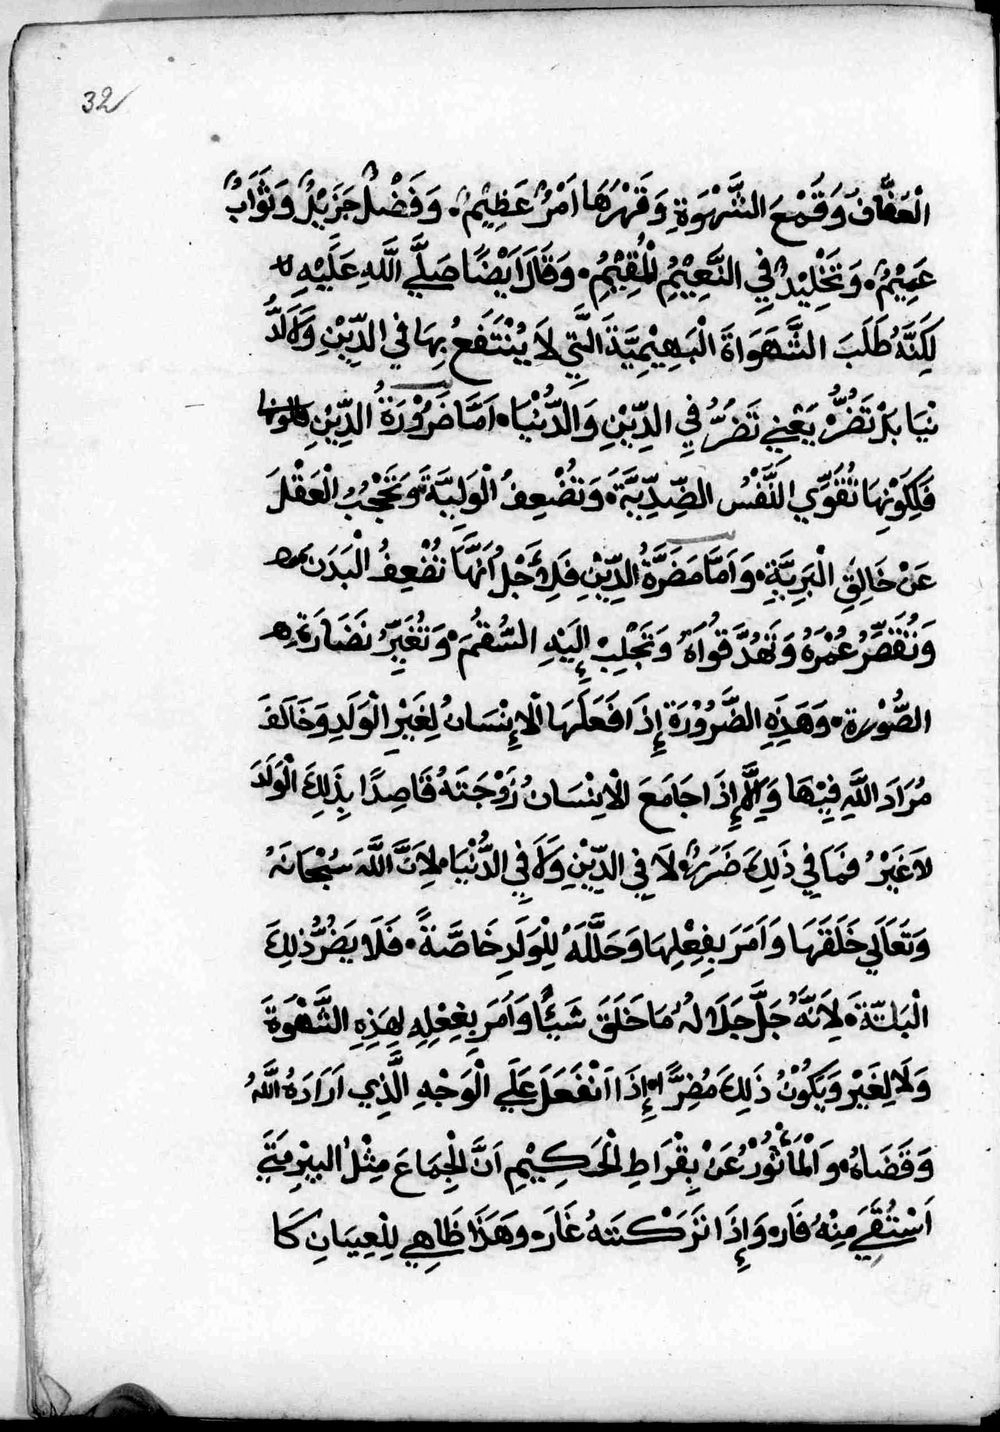 32
الْعَفَّافُ وَقَمْعَ الشَّهْوَةِ وَقَهْرُهَا اَمْرٌ عَظِيْمٌ. وَفَضْلٌ جَزِيْلٌ وَثَوَابٌ
عَمِيْمٌ. وَتَخْلِيْدٌ فِي النَّعِيْمِ الْمُقِيْمِ. وَقَالَ اَيْضًا صَلَّي اللَّهِ عَلَيْهِ
لَكِنَّهُ طَلَبَ الشَّهَوَاةَ الْبَهِيْمِيَّةَ الَّتِي لاَ يُنْتَفَعُ بِهَا فِي الدِّيْنِ وَلاَ الدُّ
نْيَا بَلْ تَضُرُّ يَعْنِي تَضُرُّ فِي الدِّيْنِ وَالدُّنْيَا. اَمَّا ضَرُوْرَةُ الدِّيْنِ
فَلِكَوْنِهَا تُقَوِّي النَّفْسُ الضِّدِّيَّةَ. وَتُضْعِفُ الْوَلِيَّةَ وَتَحْجُبُ الْعَقْلَ
عَنْ خَالِقِ الْبَرِيَّةِ. وَاَمَّا مَضَرَّةُ الدِّيْنِ فَلِأَجْلِ اَنَّهَا تُضْعِفُ الْبَدَنَ
وَتُقَصِّرُ عُمْرَهُ وَتَهُدَّ قُوَاهُ وَتَجْلِبْ اِلَيْهِ السُّقْمَ. وَتُغَيِّرُ نَضَارَةِ
الصُّوْرة. وَهَذِهِ الضَّرُوْرَةَ إِذَا فَعَلَهَا الْاِنْسَانُ لِغَيْرِ الْوَلَدِ وَخَالَفَ
مُرَادَ اللَّهِ فِيْهَا وَإِلَّا إِذَا جَامَعَ الْاِنْسَانُ زَوْجَتَهُ قَاصِدًا بِذَلِكَ الْوَلَدَ
لاَ غَيْرُ فَمَا فِي ذَلِكَ ضَرَرٌ لاَ فِي الدِّيْنِ وَلاَ فِي الدُّنْيَا. لِاَنَّ اللَّهَ سُبْحَانَهُ
وَتَعَالَي خَلَقَهَا وَاَمَرَ بِفِعْلِهَا وَحَلَّلَهُ لِلْوَلَدِ خَاصَّةً. فَلَا يَضُرُّ ذلِكَ
الْبَتَّةَ. لِاَنَّهُ جَلَّ جَلَالُهُ مَا خَلَقَ شَيْئًا وَاَمَرَ بِفِعْلِهِ لِهَذِهِ الشَّهْوَةَ
وَلَا لِغَيْرٍ وَيَكُوْنُ ذَلِكَ مُضِرًّا إِذَا اَنْفَعَلَ عَلَي الْوَجْهِ الَّذِي اَرَادَهُ اللَّهُ
وَقَضَاهُ. وَالْمَأْثُوْرُ عَنْ بِقْرَاطِ الْحَكِيْمِ اَنَّ الْجِمَاعَ مِثْلُ الْبِيْرِ مَتَي
اَسْتُقِيَ مِنْهُ فَار. وَإِذَا تَرَكْتَهُ غَارَ. وَهَذَا ظَاهِي لِلْعِيَانِ كَا